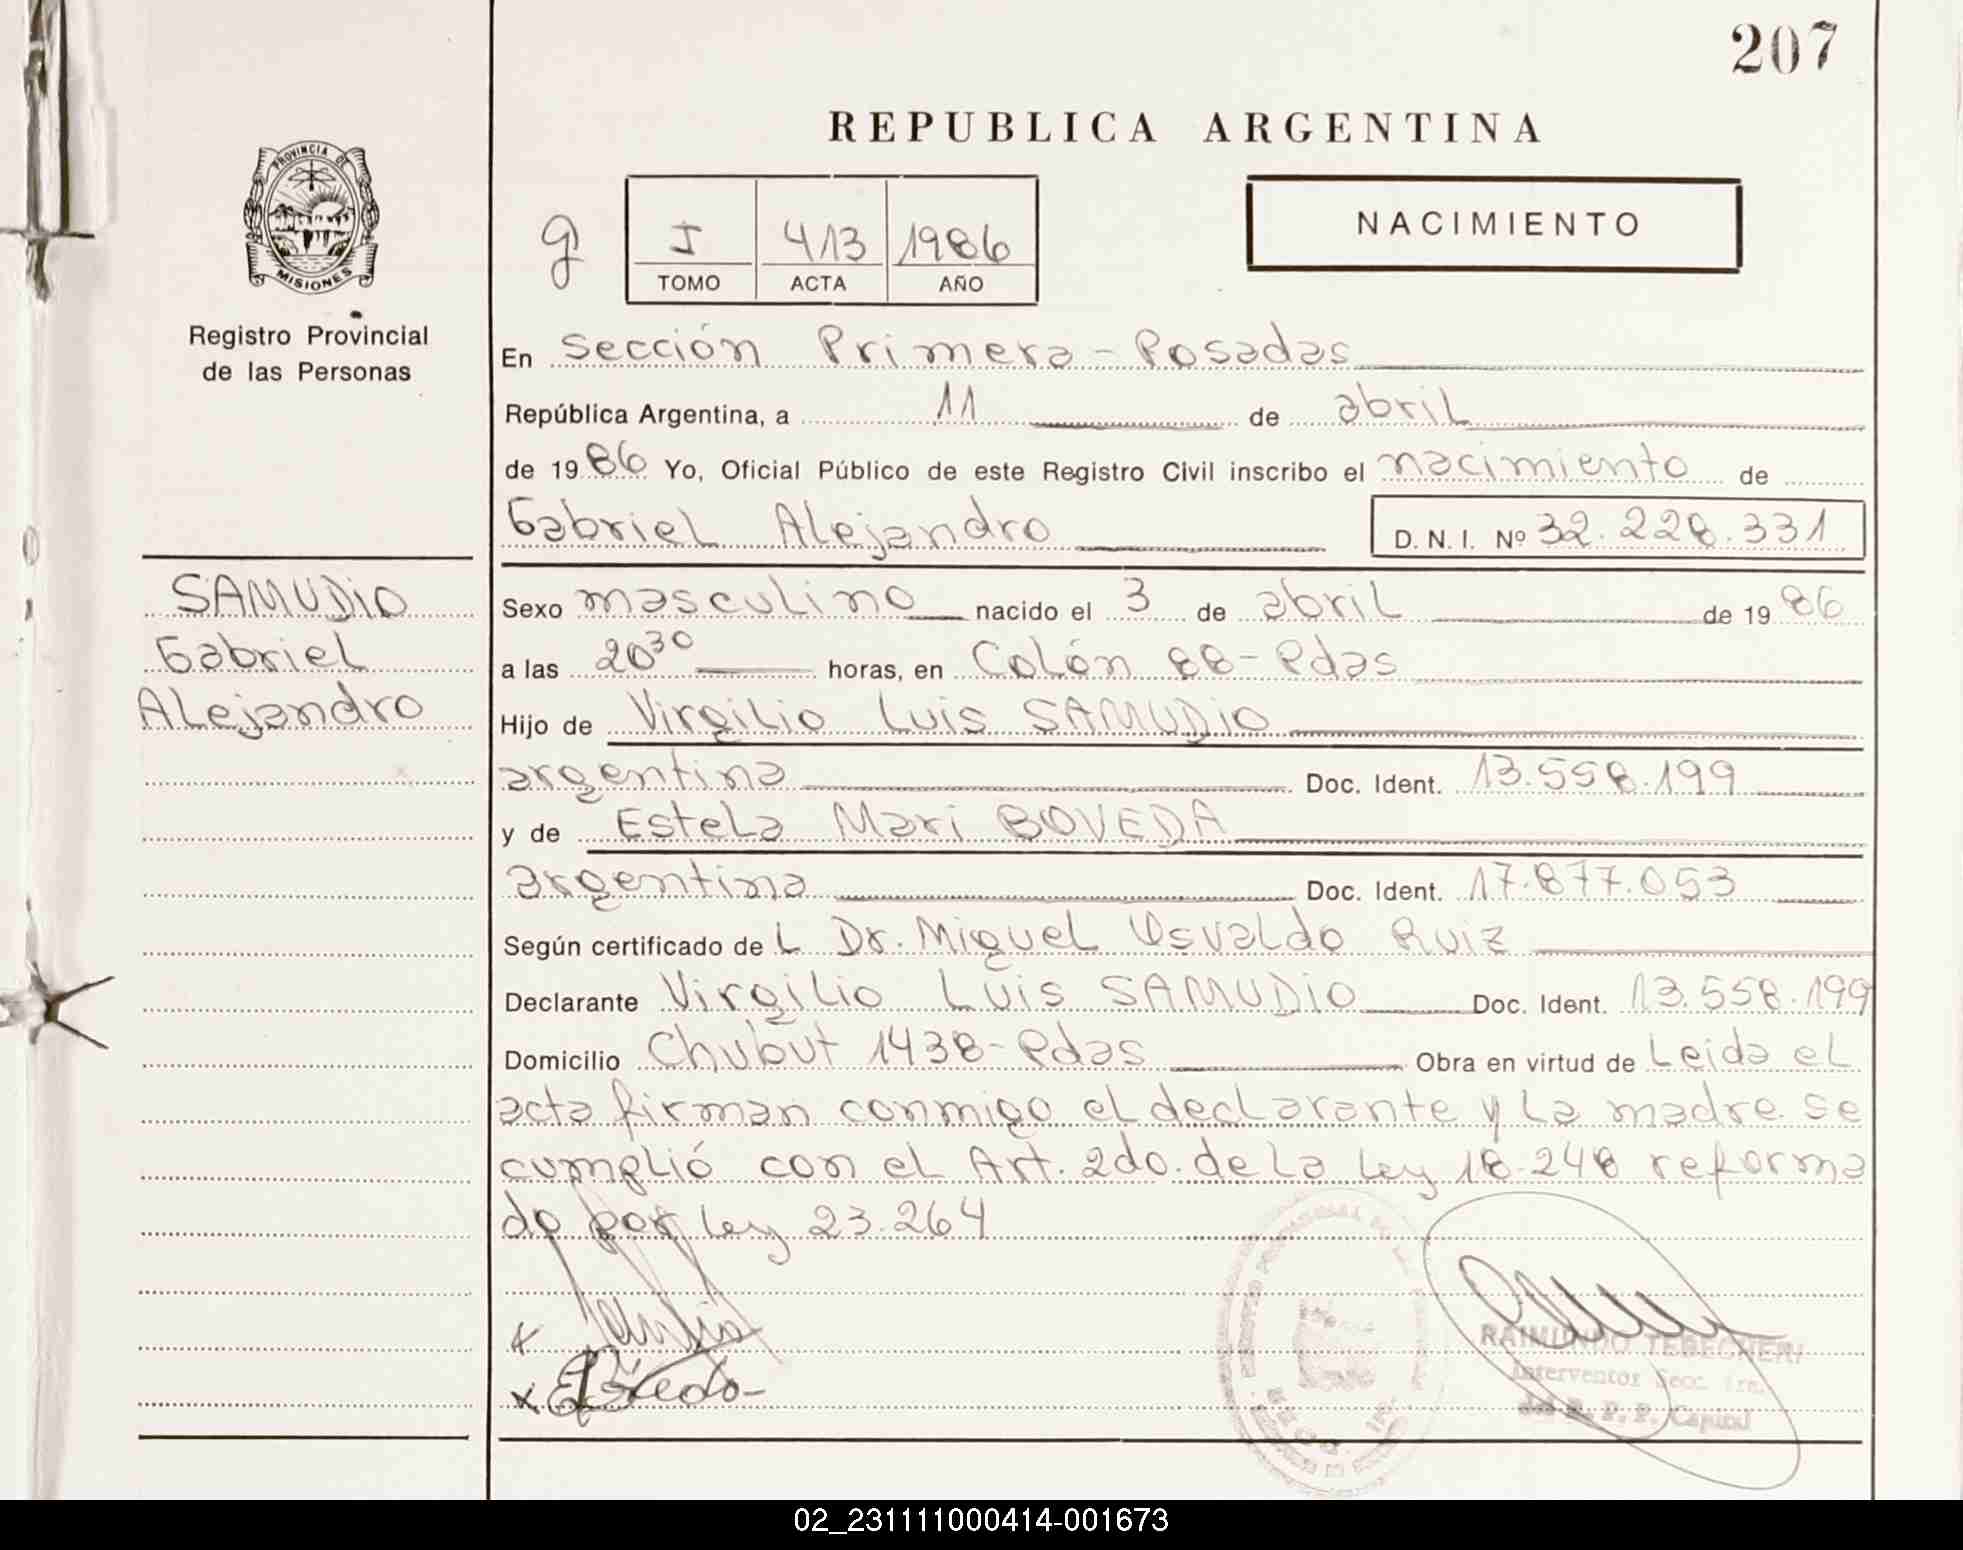 207
REPUBLICA ARGENTINA
PROVINCIA DE
MISIONES
Registro Provincial
de las Personas
g
I 413 1986
TOMO ACTA AÑO
NACIMIENTO
En Sección Primera - Posadas
República Argentina, a 11 de abril
de 1986 Yo, Oficial Público de este Registro Civil inscribo el nacimiento de
Gabriel Alejandro D.N.I. Nº 32.228.331
SAMUDIO
Gabriel
Alejandro
Sexo masculino nacido el 3 de abril de 1986
a las 20³⁰ horas, en Colón 88-Pdas
Hijo de Virgilio Luis SAMUDIO
argentina Doc. Ident. 13.558.199
y de Estela Mari BOVEDA
argentina Doc. Ident. 17.877.053
Según certificado de L Dr. Miguel Osvaldo Ruiz
Declarante Virgilio Luis SAMUDIO Doc. Ident. 13.558.199
Domicilio Chubut 1438-Pdas Obra en virtud de Leida el
acta firman conmigo el declarante y la madre. se
cumplió con el Art. 2do. de la Ley 18.248 reforma
do por Ley 23.264
RAIMUNDO TEBEGHERI
Interventor Secc. 1ra.
del R. P. P. Capital
02_231111000414-001673